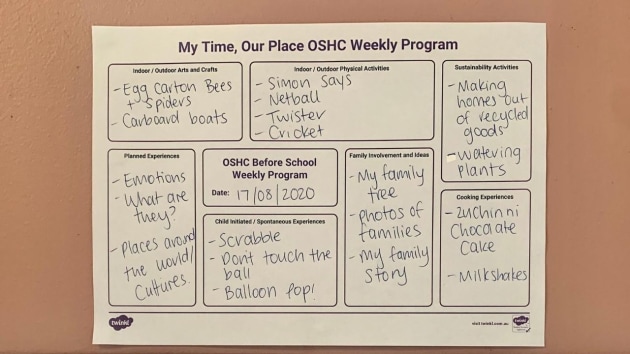 My Time, Our Place OSHC Weekly Program
Indoor / Outdoor Arts and Crafts
- Egg Carton Bees
+ Spiders
- Carboard boats
Indoor / Outdoor Physical Activities
- Simon Says
- Netball
- Twister
- Cricket
Sustainability Activities
- Making
homes out
of recycled
goods
- Watering
plants
Planned Experiences
- Emotions
- What are
they?
- Places around
the world/
Cultures.
OSHC Before School
Weekly Program
Date: 17/08/2020
Child Initiated / Spontaneous Experiences
- Scrabble
- Dont touch the
ball
- Balloon pop!
Family Involvement and Ideas
- My family
tree
- photos of
families
- my family
story
Cooking Experiences
- Zuchinni
Chocolate
Cake
- Milkshakes
twinkl
visit twinkl.com.au
twinkl